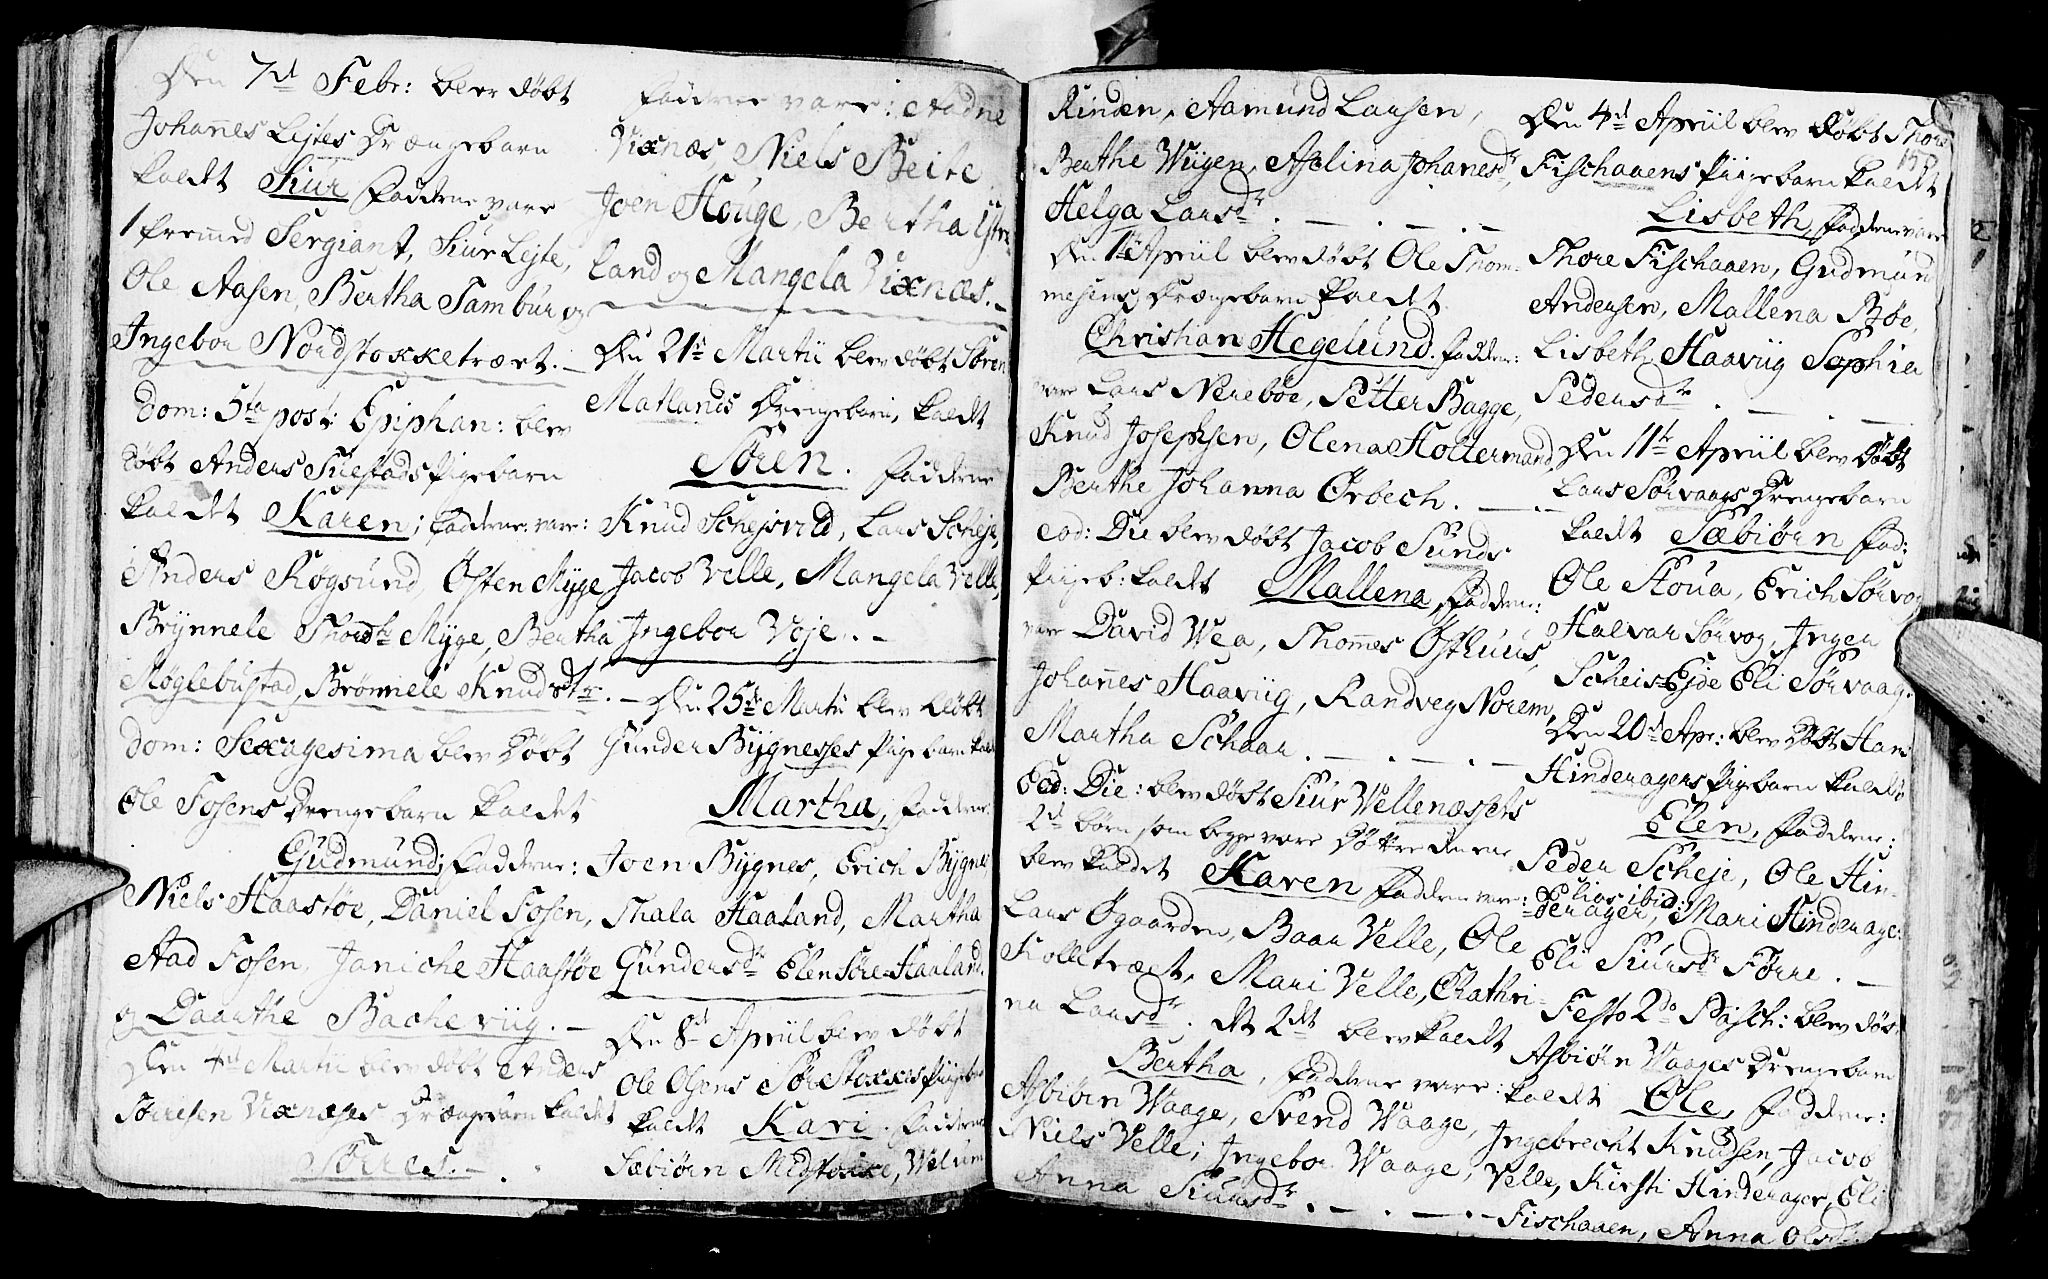 Den 7de Febr: blev døbt
Johannes Lejtes Drængebarn
kaldt Siur Fadderne vare
1 fremed Sergiant, Siur Lejte,
Ole Aasen, Bertha Tambur og
Ingebor Nordstokketræet. –
Dom: 5ta post Epiphan: blev
døbt Anders Suestads Pigebarn
kaldt Karen; Fadderne vare:
Anders Røgsund, Østen Myge
Brynnele Thordtr Myge, Bertha
Møglebustad, Brønnele Knudsdtr. –
Dom: Sexagesima blev døbt
Ole Fosens Drengebarn kaldet
Gudmund; Fadderne:
Niels Haastøe, Daniel Fosen,
Aad Fosen, Janiche Haastøe
og Daarthe Bacheviig. –
Den 4de Martii blev døbt Anders
Sørresen Vixnæses Drængebarn kaldet
Sørres. –
Fadderne vare: Aadne
Vixnæs, Niels Beite
Joen Houge, Bertha Østre
Land og Mangela Vixnæs. –
Den 21de Martii blev døbt Søren
Matlands Drengebarn, kaldt
Søren. Fadderne
Knud Schejsvid, Lars Scheje,
Jacob Velle, Mangela Velle,
Ingebor Voje. –
Den 25de Martii blev døbt
Gunder Bygneses Pigebarn kaldt
Martha, Fadderne
Joen Bygnes, Erich Bygnes
Thala Haaland, Martha
Gundersdr Elen Søre-Haaland.
Den 8de Apriil blev døbt
Ole Olsens Sør Stoxxes Piigebarn
kaldt Kari. Fadderne
Sæbiørn Medstoxxe, Velum
Rinden, Aamund Larsen,
Berthe Wiigen, Aselina Johanesdr,
Helga Larsdr. –
Den 1te Apriil blev døbt Ole Thom-
mesens Drængebarn kaldt
Christian Hegelund. Fadder:
vare Lars Nerebøe, Petter Bagge,
Knud Josepsen, Olena Holtermand
Berthe Johanna Ørbech. –
eod: Die blev døbt Jacob Sunds
Piigeb: kaldt Mallena, Fadder:
vare David Wea, Thomes Østhuus,
Johannes Haaviig, Randveg Norem,
Martha Schaar. –
Eod: Die: blev døbt Siur Vellenæssets
2de børn som begge vare Døttre den ene
blev kaldet Karen Fadderne vare:
Lars Øgaarden, Baar Velle, Ole
Kolletræet, Mari Velle, Chathri-
na Larsdr. dt 2det blev kaldt
Bertha, Fadderne vare:
Asbiørn Waage, Svend Waage,
Niels Velle, Ingebor Waage,
Anna Siursdr. –
Den 4de Apriil blev døbt Thore
Fischaaens Piigebarn kaldt
Lisbeth, Fadderne vare
Thore Fischaaen, Gudmund
Andersen, Mallena Bøe,
Lisbeth Haaviig Sophia
Pedersdr. –
Den 11te Apriil blev døbt
Lars Sørvaags Drengebarn
kaldt Sæbiørn Fad:
Ole Stoua, Erich Sørvog
Halvar Sørvog, Inger
Scheis-Ejde Eli Sørvaag.
Den 20de Apr: blev døbt Hans
Hinderagers Pigebarn kaldt
Elen, Fadderne:
Peder Scheje, Ole Hin-
Elias ibid:
derager, Mari Hinderager
Eli Siursdr Førre. –
Festo 2do Pasch: blev døbt
Asbiørn Vaages Drengebarn
kaldt Ole, Fadderne:
Ingebrecht Knudsen, Jacob
Velle, Kirsti Hinderager, Eli
Fischaaen, Anna Olsdr.